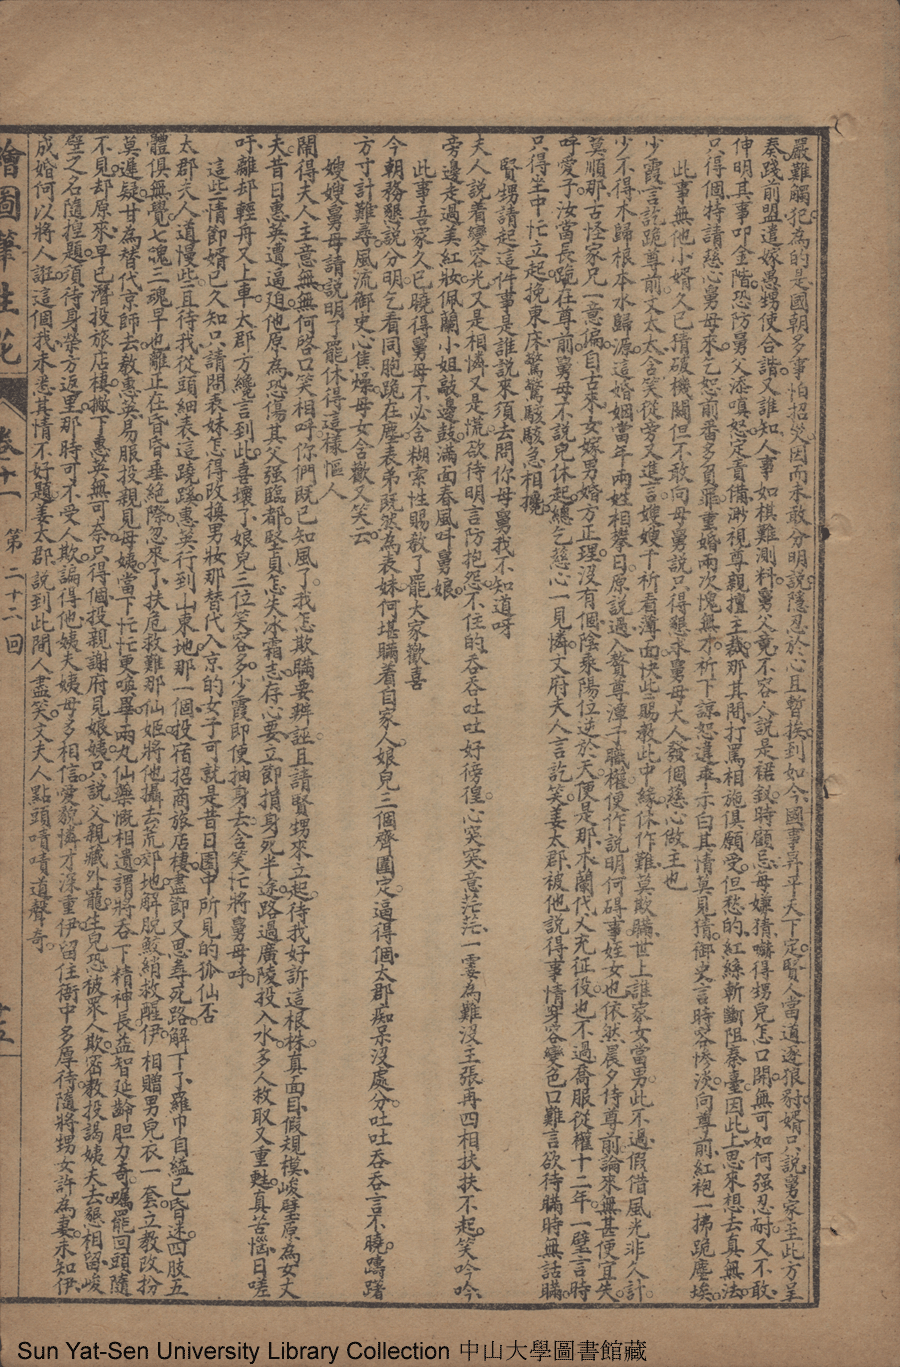 嚴難觸犯為的是國朝多事怕招災因而未敢分明說隱忍於心且暫挨到如今國事昇平天下定賢人當道逐狼豺婿只說舅家至此方呈
奏踐前盟遣嫁愚甥使合諧又誰知人事如棋難測料舅父竟不容人說是裙釵時顧忌每嫌猜嚇得甥兒怎口開無可如何强忍耐又不敢
伸明其事叩金階恐防舅父添嗔怒定責備渺視尊親擅主裁那其間打罵相施俱願受但愁的紅絲斬斷阻秦臺因此上思來想去真無法
只得個特請慈心舅母來乞恕前番多負罪重婚兩次愧無才祈下諒恕違乖示白其情莫見猜御史言時容慘淡向尊前紅袍一拂跪塵埃
此事無他小婿久已猜破機關但不敢向母舅說只得懇求舅母大人發個慈心做主也
少霞言訖跪尊前文太太含笑從旁又進言嫂嫂千祈看薄面快些賜教此中緣休作難莫欺瞞世上誰家女當男此不過假借風光非久計
少不得木歸根本水歸源這婚姻當年兩姓相攀日原說過入贅尊潭子職權便作說明何碍事姪女也依然晨夕侍尊前論來無甚便宜失
莫順那古怪家兄一意偏自古來女嫁男婚方正理沒有個陰乘陽位逆於天便是那木蘭代父充征役也不過喬服從權十二年一壁言時
呼愛子汝當長跪在尊前舅母不說兒休起總乞慈心一見憐文府夫人言訖笑姜太郡被他說得事情穿容變色口難言欲待瞞時無話瞞
只得坐中忙立起挽東床驚驚駭駭急相攙
賢甥請起這件事是誰說來須去問你母舅我不知道呀
夫人說着變容光又是相憐又是慌欲待明言防抱怨不住的吞吞吐吐好徬徨心突突意茫茫一霎為難沒主張再四相扶扶不起笑吟吟
旁邊走過美紅妝佩蘭小姐敲邊鼓滿面春風叫舅娘
此事吾家久已曉得舅母不必含糊索性賜教了罷大家歡喜
今朝務懇說分明乞看同胞跪在塵表弟既然為表妹何堪瞞着自家人娘兒三個齊圍定逼得個太郡痴呆沒處分吐吐吞吞言不曉躊躇
方寸計難尋風流御史心焦燥母女含歡又笑云
嫂嫂舅母請說明了罷休得這樣慪人
閙得夫人主意無無何啓口笑相呼你們既已知風了我怎欺瞞要辨誣且請賢甥來立起待我好訴這根株真面目假規模峻壁原為女丈
夫昔日惠英遭逼迫他原為恐傷其父强臨都堅貞怎失冰霜志存心要立即捐身死半途路過廣陵投入水多人救取又重甦真苦惱日嗟
吁離却輕舟又上車太郡方纔言到此喜壞了娘兒三位笑容多少霞即便抽身去含笑忙將舅母呼
這些情節婿已久知只請問表妹怎得改換男妝那替代入京的女子可就是昔日圖中所見的俗仙否
太郡夫人道慢些且待我從頭細表這蹺蹊惠英行到山東地那一個投宿招商旅店棲盡節又思尋死路解下了羅巾自縊已昏迷四肢五
體俱無覺七魂三魄早也離正在昏昏垂絕際忽來了扶危救難那仙姬將他攝去荒郊地解脫鮫綃救醒伊相贈男兒衣一套立教改扮
莫遲疑甘為替代京師去教惠英易服投親見母姨當下忙忙更喚畢兩丸仙藥慨相遺謂將吞下精神長益智延齡胆力奇囑罷回頭隨
不見却原來早已潛投旅店棲撇下惠英無可奈只得個投親謝府見娘姨只說父親藏外寵生兒恐被眾人欺密教投謁姨夫去懇相留峻
壁之名隨捏題須待身榮方返里那時可不受人欺誑得他姨夫姨母多相信愛貌憐才深重伊留住衙中多厚待隨將甥女許為妻未知伊
成婚何以將人誑這個我未悉其情不好題姜太郡說到此間人盡笑文夫人點頭嘖嘖道聲奇
繪圖筆生花 卷十一 第二十二回
Sun Yat-Sen University Library Collection 中山大學圖書館藏